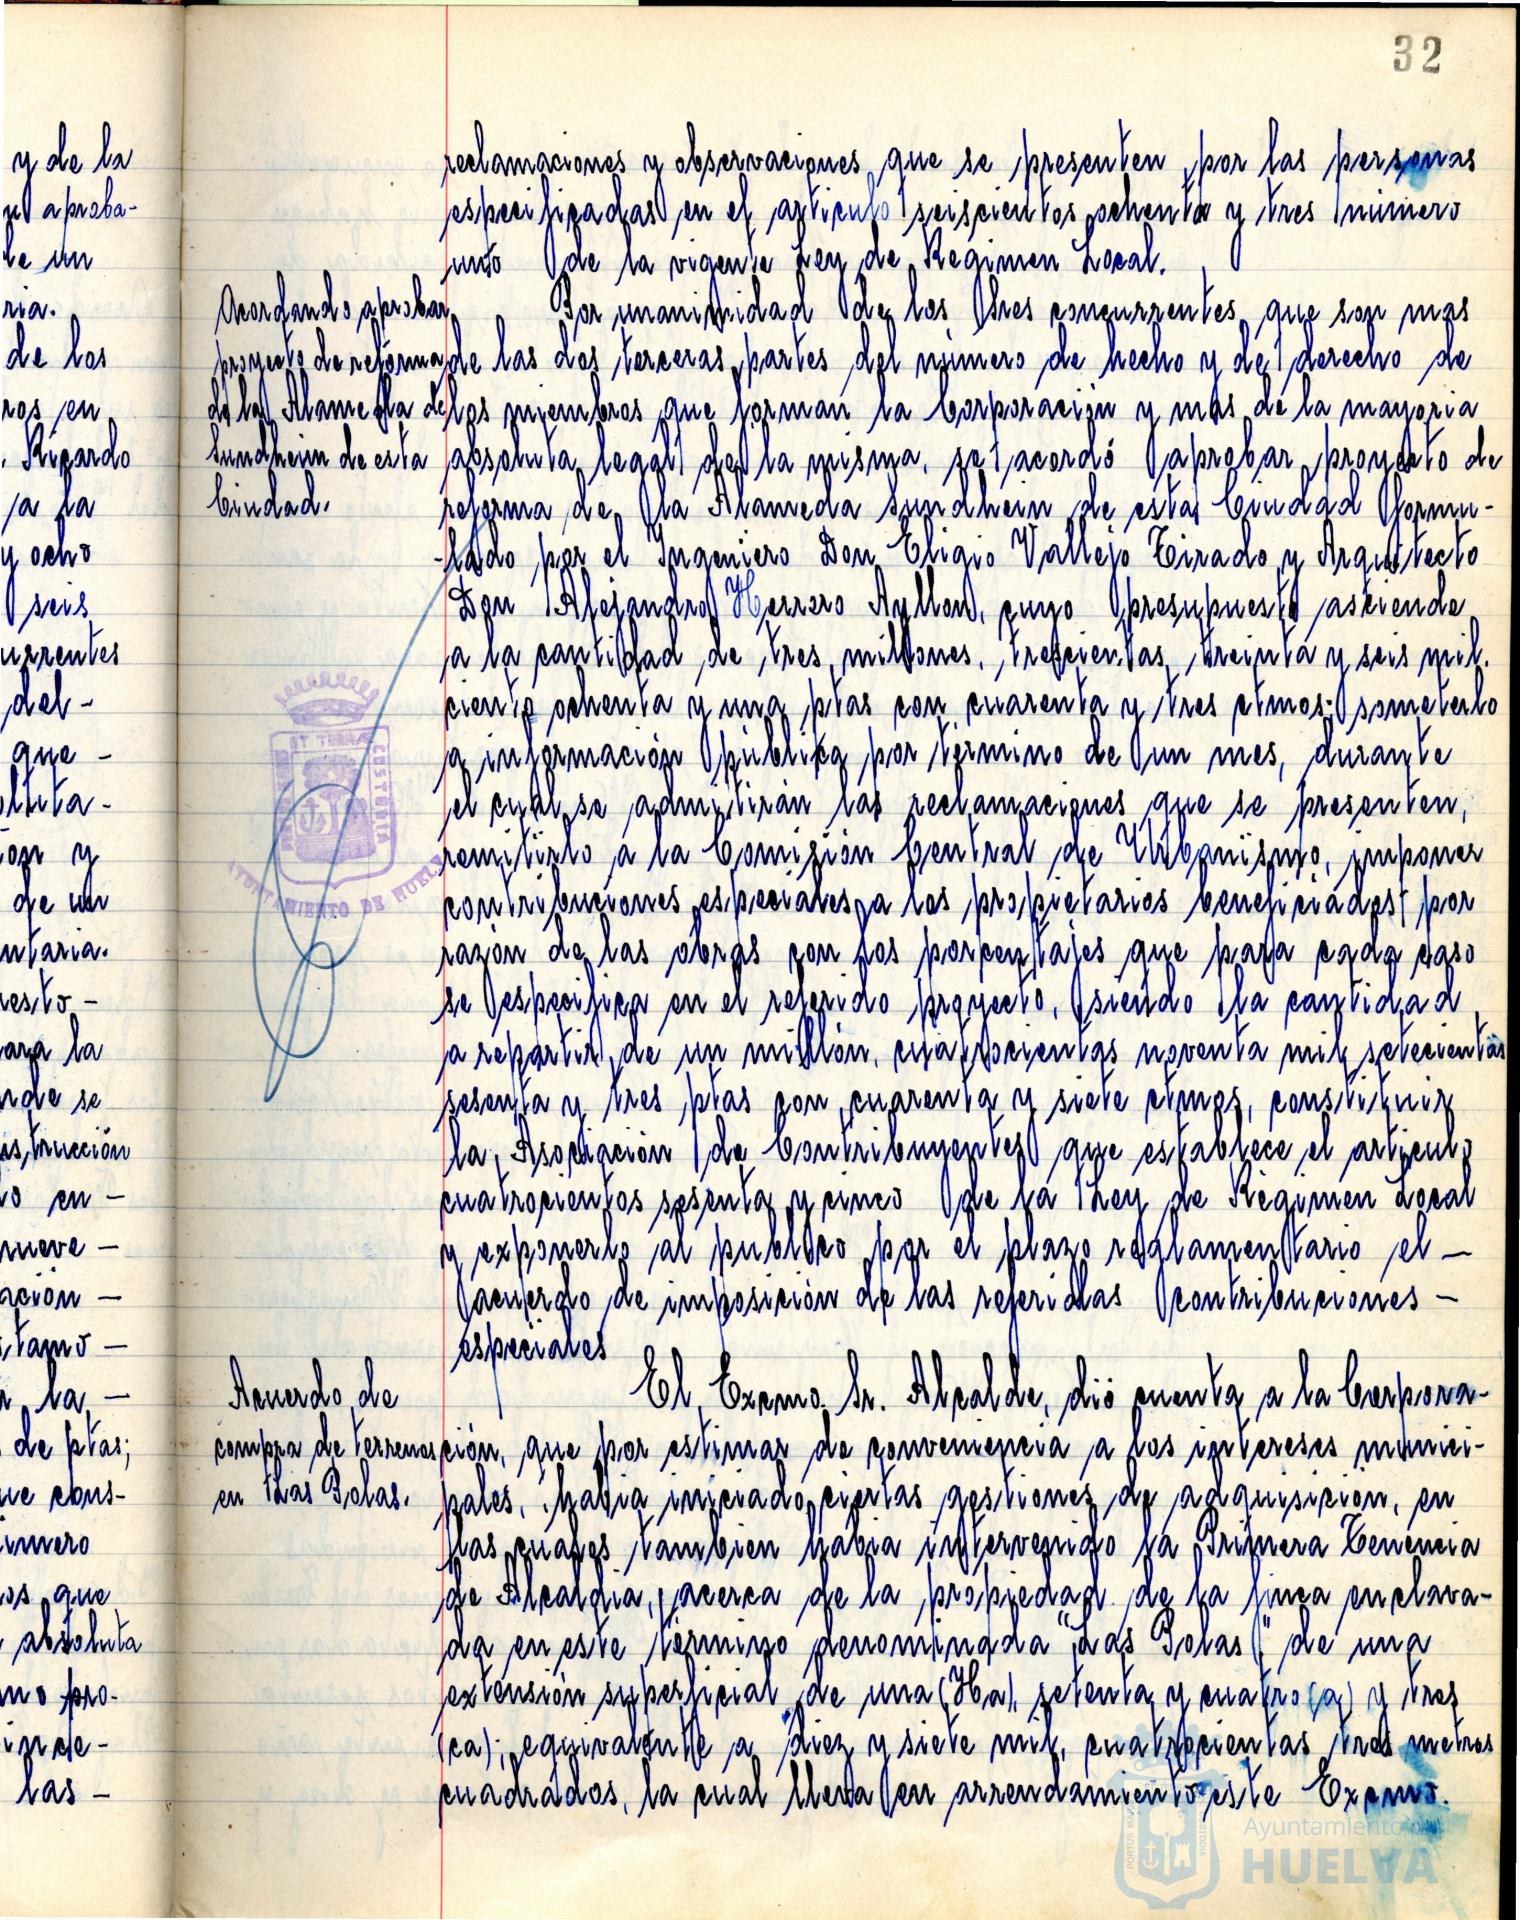 32
y de la
aproba-
de un
ria.
de los
ros en
Ricardo
a la
y ocho
seis
urrentes
del-
que -
oluta-
ion y
de un
ntaria.
esto -
ara la
nde se
strucción
to en -
nueve -
ación -
stamo -
r la -
de ptas;
ue cons-
imero
os que
absoluta
mo pro-
inde-
las -
reclamaciones y observaciones que se presenten por las personas
especificadas en el articulo seiscientos ochenta y tres número
uno de la vigente Ley de Regimen Local.
Acordando aprobar
proyecto de reforma
de la Alameda de
Sundheim de esta
Ciudad.
Por unanimidad de los Sres concurrentes que son mas
de las dos terceras partes del número de hecho y de derecho de
los miembros que forman la Corporación y mas de la mayoria
absoluta legal de la misma, se acordó aprobar proyecto de
reforma de la Alameda Sundhein de esta Ciudad formu-
-lado por el Ingeniero Don Eligio Vallejo Tirado y Arquitecto
Don Alejandro Herrero Ayllon, cuyo presupuesto asciende
a la cantidad de tres millones, trescientas treinta y seis mil
ciento ochenta y una ptas con cuarenta y tres ctmos; someterlo
a información pública por termino de un mes, durante
el cual se admitirán las reclamaciones que se presenten,
remitirlo a la Comisión Central de Urbanismo, imponer
contribuciones especiales a los propietarios beneficiados por
razón de las obras con los porcentajes que para cada caso
se especifica en el referido proyecto, siendo la cantidad
a repartir de un millón, cuatrocientas noventa mil setecientas
sesenta y tres ptas con cuarenta y siete ctmos, constituir
la Asociación de Contribuyentes que establece el articulo
cuatrocientos sesenta y cinco de la Ley de Regimen Local
y exponerlo al publico por el plazo reglamentario el -
acuerdo de imposición de las referidas contribuciones -
especiales
Acuerdo de
compra de terrenos
en Las Bolas.
El Excmo. Sr. Alcalde, dió cuenta a la Corpora-
ción, que por estimar de conveniencia a los intereses munici-
pales, habia iniciado ciertas gestiones de adquisición, en
las cuales tambien habia intervenido la Primera Tenencia
de Alcaldia, acerca de la propiedad de la finca enclava-
da en este término denominada "Las Bolas" de una
extensión superficial de una (Ha), setenta y cuatro (a) y tres
(ca); equivalente a diez y siete mil, cuatrocientas tres metros
cuadrados, la cual lleva en arrendamiento este Excmo.
ET TERRAE CUSTODIA
AYUNTAMIENTO DE HUELVA
Ayuntamiento de
HUELVA